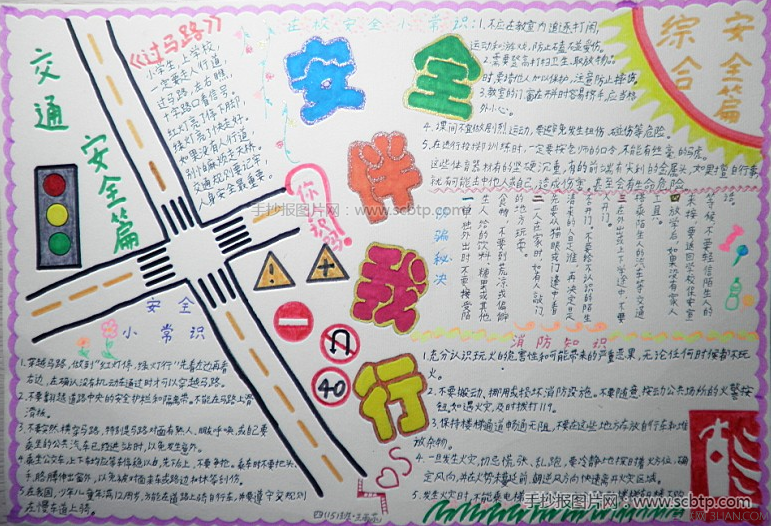 交通
安全篇
《过马路》
小学生,上学校,
一定要走人行道,
过马路,左右瞧,
十字路口看信号,
红灯亮了停下脚,
绿灯亮了快走好。
如果没有人行道,
交通规则要记牢,
人身安全最重要。
你认识吗?
安全
小常识
1.穿越马路,做到"红灯停,绿灯行"先看左边再看
右边,在确认没有机动车通过时才可以穿越马路。
2.不要翻越道路中央的安全护栏和隔离带。不能在马路上滑
滑板。
4.乘坐公交车,上下车均应等车停稳以后,先下后上,不要争抢。乘车时不要把头、
手、胳膊伸出窗外,以免被对面来车或路边树木等刮伤。
5.在我国,少年儿童年满12周岁,方能在道路上骑自行车,并要遵守交规则
在慢车道上骑。
安全伴我行
40
在校安全小常识:1.不应在教室内追逐打闹,
运动和游戏,防止磕碰受伤。
2.需要登高打扫卫生、取放物品
时,要请他人加以保护,注意防止摔伤。
3.教室的门、窗在开关时容易挤手,应当格
外小心。
4.课间不宜做剧烈运动,要避免发生扭伤、碰伤等危险。
这些体育器材有的坚硬沉重,有的前端有尖利的金属头,如果擅自行事,
就有可能击中他人或自己,造成伤害,甚至会有生命危险。
安全篇
综合
防骗秘决
一单独外出时不要接受陌
生人给的饮料、糖果或其他
食物,不要到荒凉或偏僻
的地方玩耍。
二一人在家时,如有人敲门
先要从猫眼或门缝中看
清来的人是谁,再决定是
否开门,不要给不认识的陌生
人开门。
三在外出或上下学途中,不要
搭乘陌生人的汽车等交通
工具。
四放学后,如果没有家人
来接,要返回学校保安室
等候,不要轻信陌生人的
话。
消防知识
1.充分认识玩火的危害性和可能带来的严重恶果,无论任何时候都不玩
火。
2.不要搬动、挪用或轻坏消防设施。不要随意按动公共场所的火警按
钮,如遇火灾,及时拨打119。
3.保持楼梯通道畅通无阻,不要在这些地方存放自行车和堆
放杂物。
4.一旦发生火灾,切忌慌张、乱跑,要冷静地探明着火方位,确
定风向,并在火势未蔓延前,朝逆风方向快速离开火灾区域。
手抄报图片网:www.scbtp.com
手抄报图片网:www.scbtp.com
3LIAN.COM